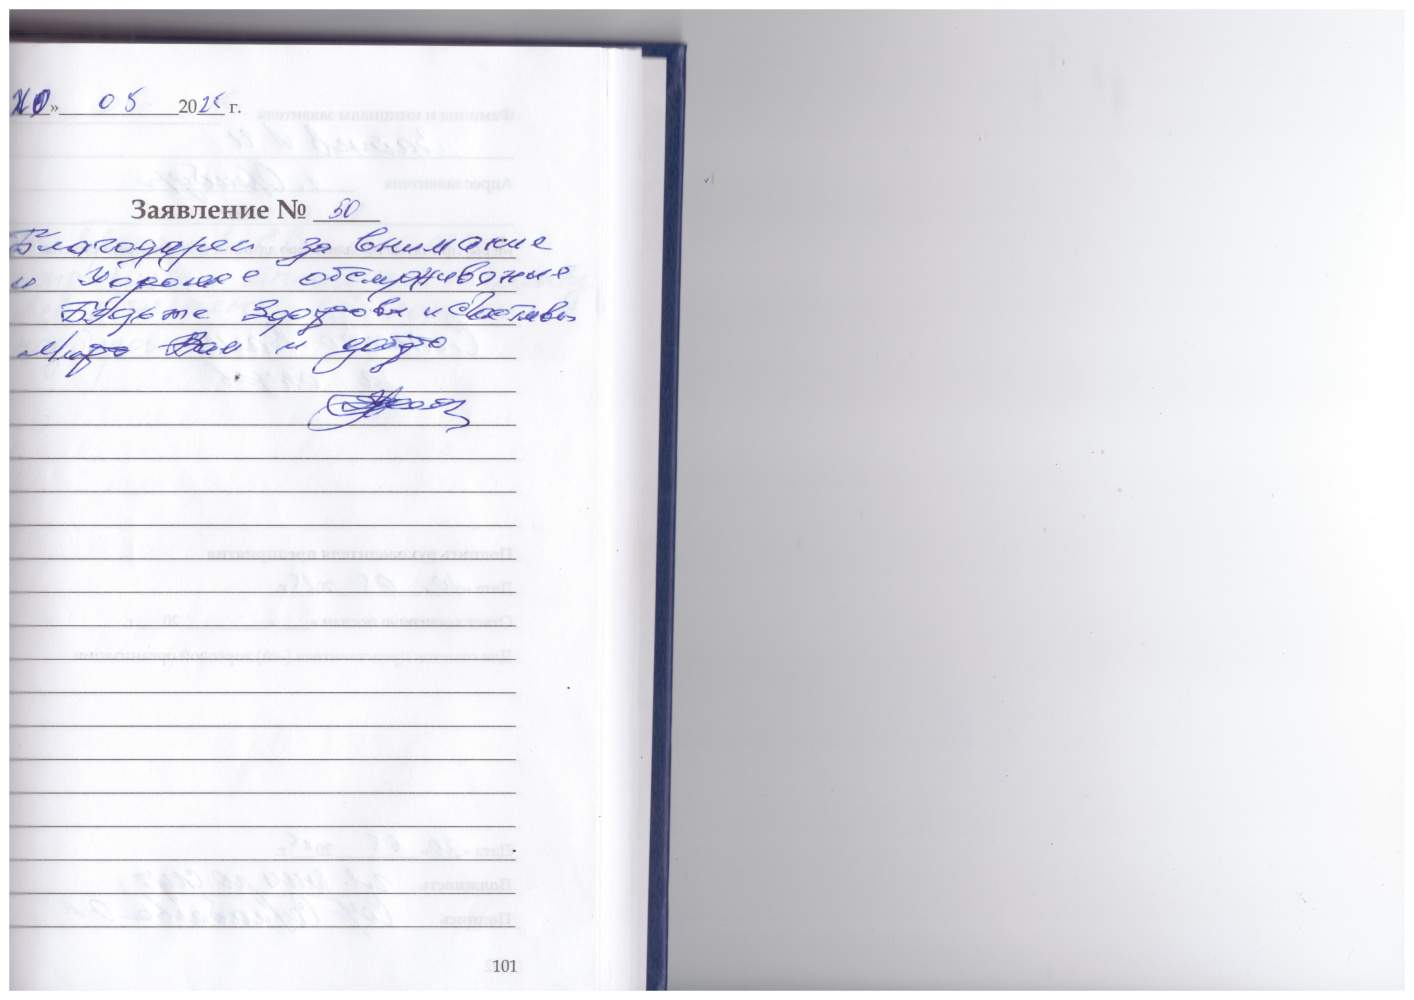 » 05 2025 г.
Заявление № 50
Благодарен за внимание
и хорошее обслуживание
Будьте Здоровы и Счастливы
Мира Вам и добра
101